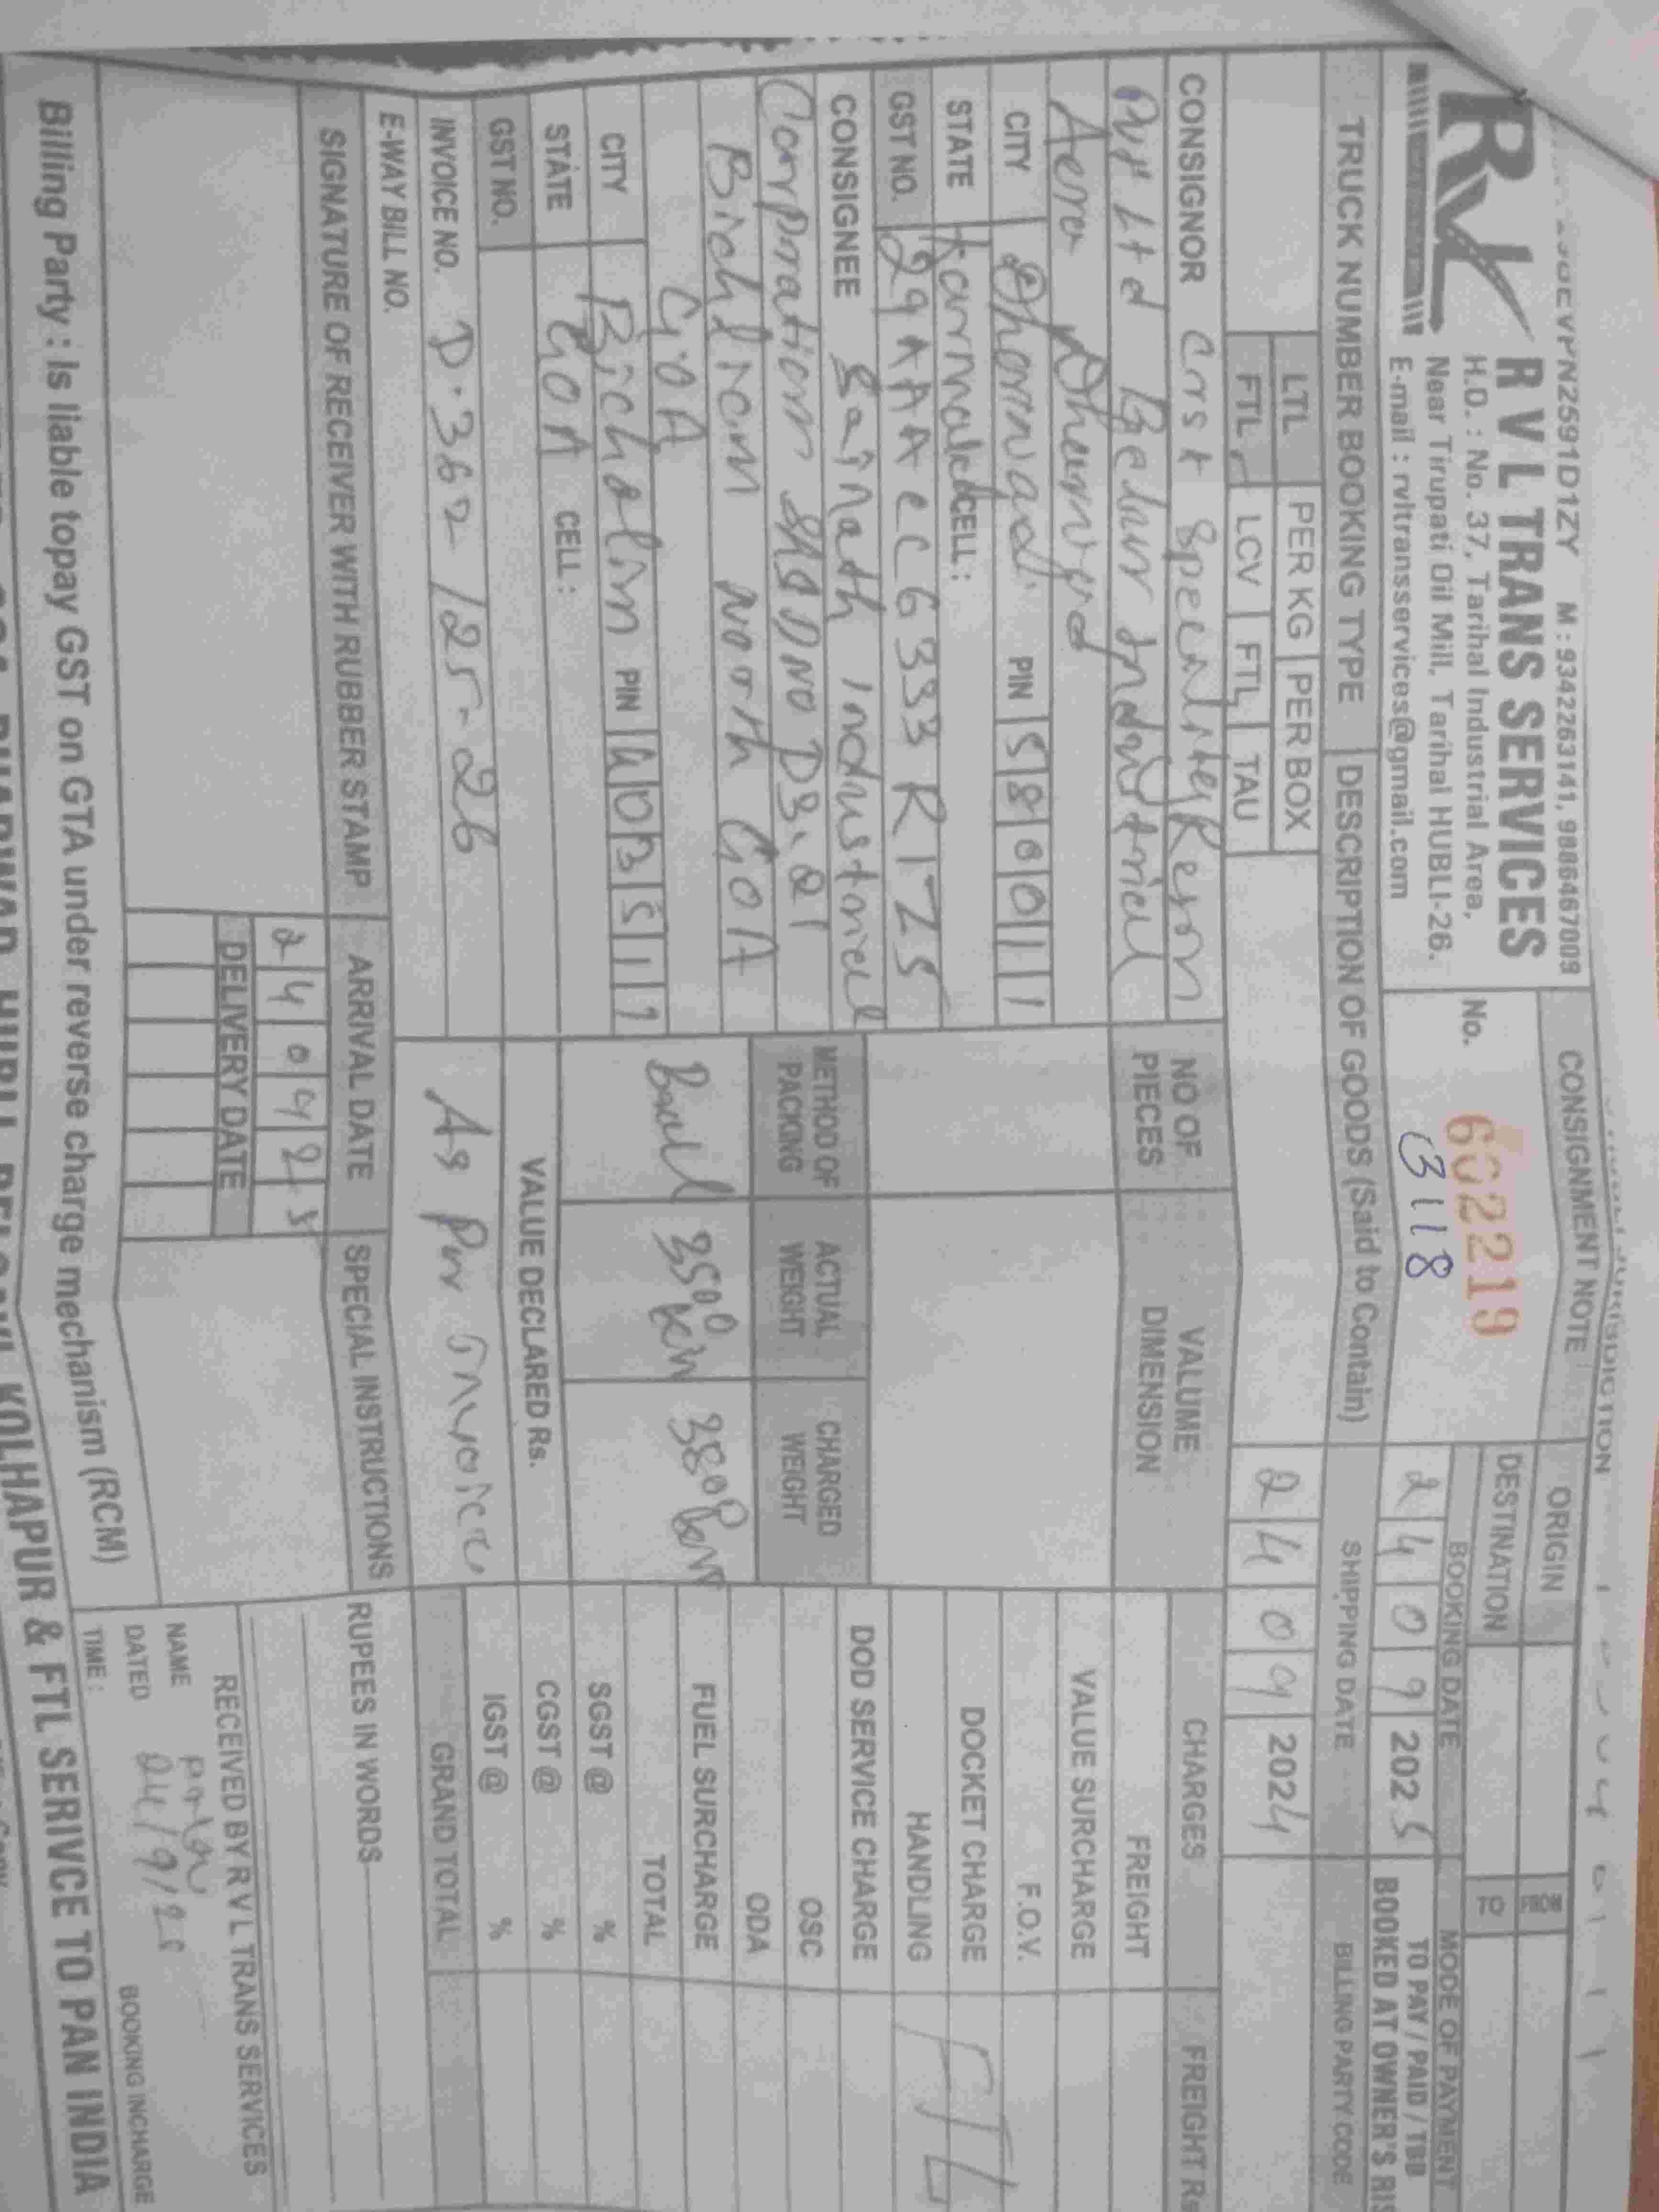 M : 9342263141, 9886467009
R V L TRANS SERVICES
H.O. : No. 37, Tarihal Industrial Area,
Near Tirupati Oil Mill, Tarihal HUBLI-26.
E-mail : rvltransservices@gmail.com
CONSIGNMENT NOTE
No. 602219
3118
ORIGIN
DESTINATION
FROM
TO
BOOKING DATE
24 09 2025
MODE OF PAYMENT
TO PAY / PAID / TBB
BOOKED AT OWNER'S RIS
TRUCK NUMBER BOOKING TYPE
DESCRIPTION OF GOODS (Said to Contain)
SHIPPING DATE
BILLING PARTY CODE
LTL PER KG PER BOX
FTL LCV FTL TAU
24 09 2024
CONSIGNOR
Pvt Ltd Belur Industrial
CITY PIN 580011
STATE Karnatak CELL :
GST NO. 29AAAEC6333R1Z5
CONSIGNEE Sainath Industrial
Corporation Shed No D3.21
Bicholim North GOA
GOA
CITY Bicholim PIN 403517
STATE GOA CELL :
GST NO.
INVOICE NO. D.362/25-26
E-WAY BILL NO.
NO OF PIECES
VALUME DIMENSION
METHOD OF PACKING
ACTUAL WEIGHT
CHARGED WEIGHT
3500
VALUE DECLARED Rs.
As Per Invoice
CHARGES
FREIGHT Rs
FREIGHT
VALUE SURCHARGE
F.O.V.
DOCKET CHARGE
HANDLING
DOD SERVICE CHARGE
OSC
ODA
FUEL SURCHARGE
TOTAL
SGST @ %
CGST @ %
IGST @ %
GRAND TOTAL
FTL
SIGNATURE OF RECEIVER WITH RUBBER STAMP
ARRIVAL DATE
24 09 25
DELIVERY DATE
SPECIAL INSTRUCTIONS
RUPEES IN WORDS
RECEIVED BY R V L TRANS SERVICES
NAME
DATED 24/9/25
TIME :
BOOKING INCHARGE
Billing Party : Is liable topay GST on GTA under reverse charge mechanism (RCM)
KOLHAPUR & FTL SERIVCE TO PAN INDIA